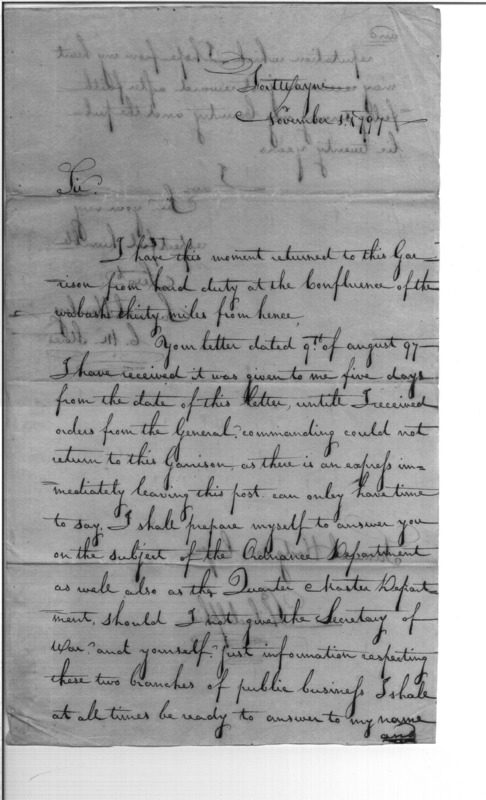 Fort Wayne
November 1st 1797
Sir.
I have this moment returned to this Gar=
=rison from hard duty at the Confluence of the
wabash thirty miles from hence,
Your letter dated 9th of august 97
I have received it was given to me five days
from the date of this letter, untill I received
orders from the General, commanding could not
return to this Garrison, as there is an express im=
=mediately leaving this post can onley have time
to say, I shall prepare myself to answer you
on the subject of the Ordnance Department
as well also as the Quarter Master Depart=
ment, should I not give the Secretary of
War, and yourself, Just information respecting
these two branches of public business I shall
at all times be ready to answer to my name
and